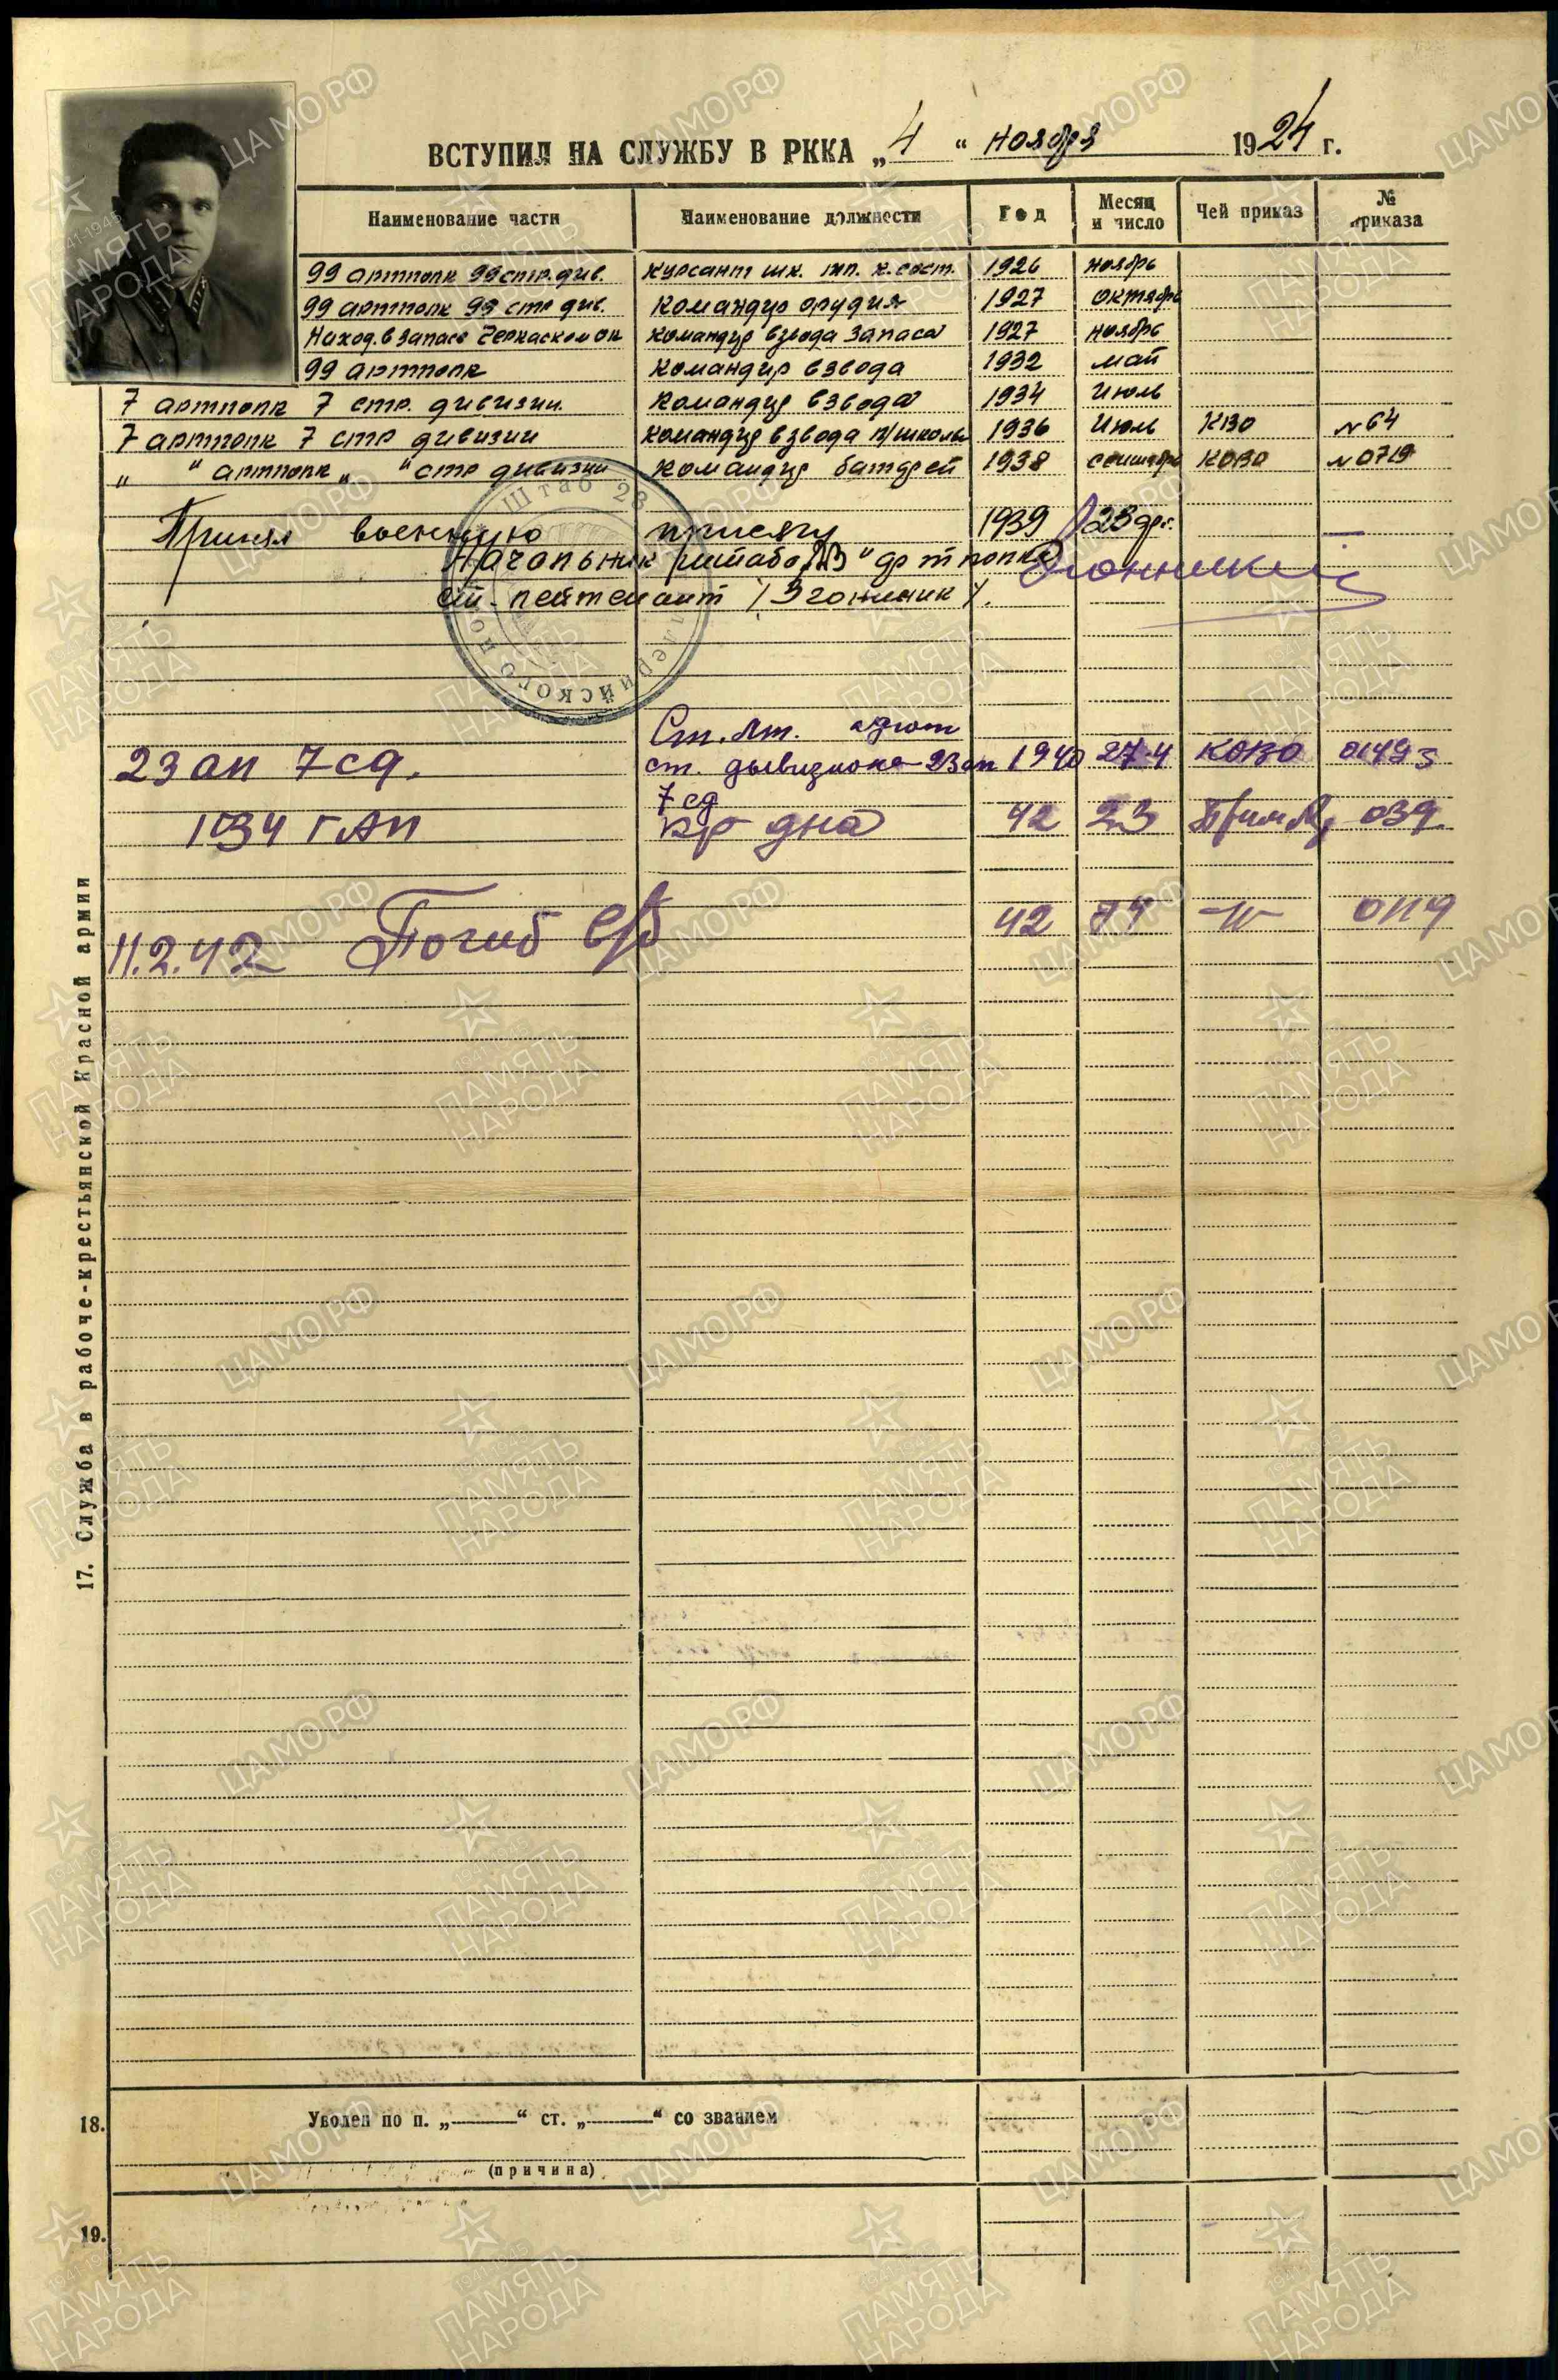 ВСТУПИЛ НА СЛУЖБУ В РККА „4“ ноября 1924 г.
Наименование части Наименование должности Год Месяц и число Чей приказ № приказа
99 артполк 99 стр. див. курсант шк. мл. к. сост. 1926 ноябрь
99 артполк 99 стр див. командир орудия 1927 октябрь
Наход. в запасе Черкаском ок командир взвода запаса 1927 ноябрь
99 артполк командир взвода 1932 май
7 артполк 7 стр. дивизии. командир взвода 1934 июль
7 артполк 7 стр дивизии командир взвода п/школы 1936 июль КВО № 64
„ “ артполк „ “ стр дивизии командир батареи 1938 сентябрь КОВО № 0719
Принял военную присягу 1939 23 фев.
Начальник штаба „23“ артполка
ст. лейтенант
Штаб 23
Ст. лт. адъют
23 ап 7 сд. ст. дивизиона 23 ап 1940 27.4 КОВО 01493
7 сд
1034 ГАП к-р дна 42 23 039
11.2.42 Погиб в/б 42 -"- 0119
17. Служба в рабоче-крестьянской Красной армии
18. Уволен по п. „——“ ст. „——“ со званием
(причина)
19.
ЦАМО.РФ
1941-1945
ПАМЯТЬ
НАРОДА